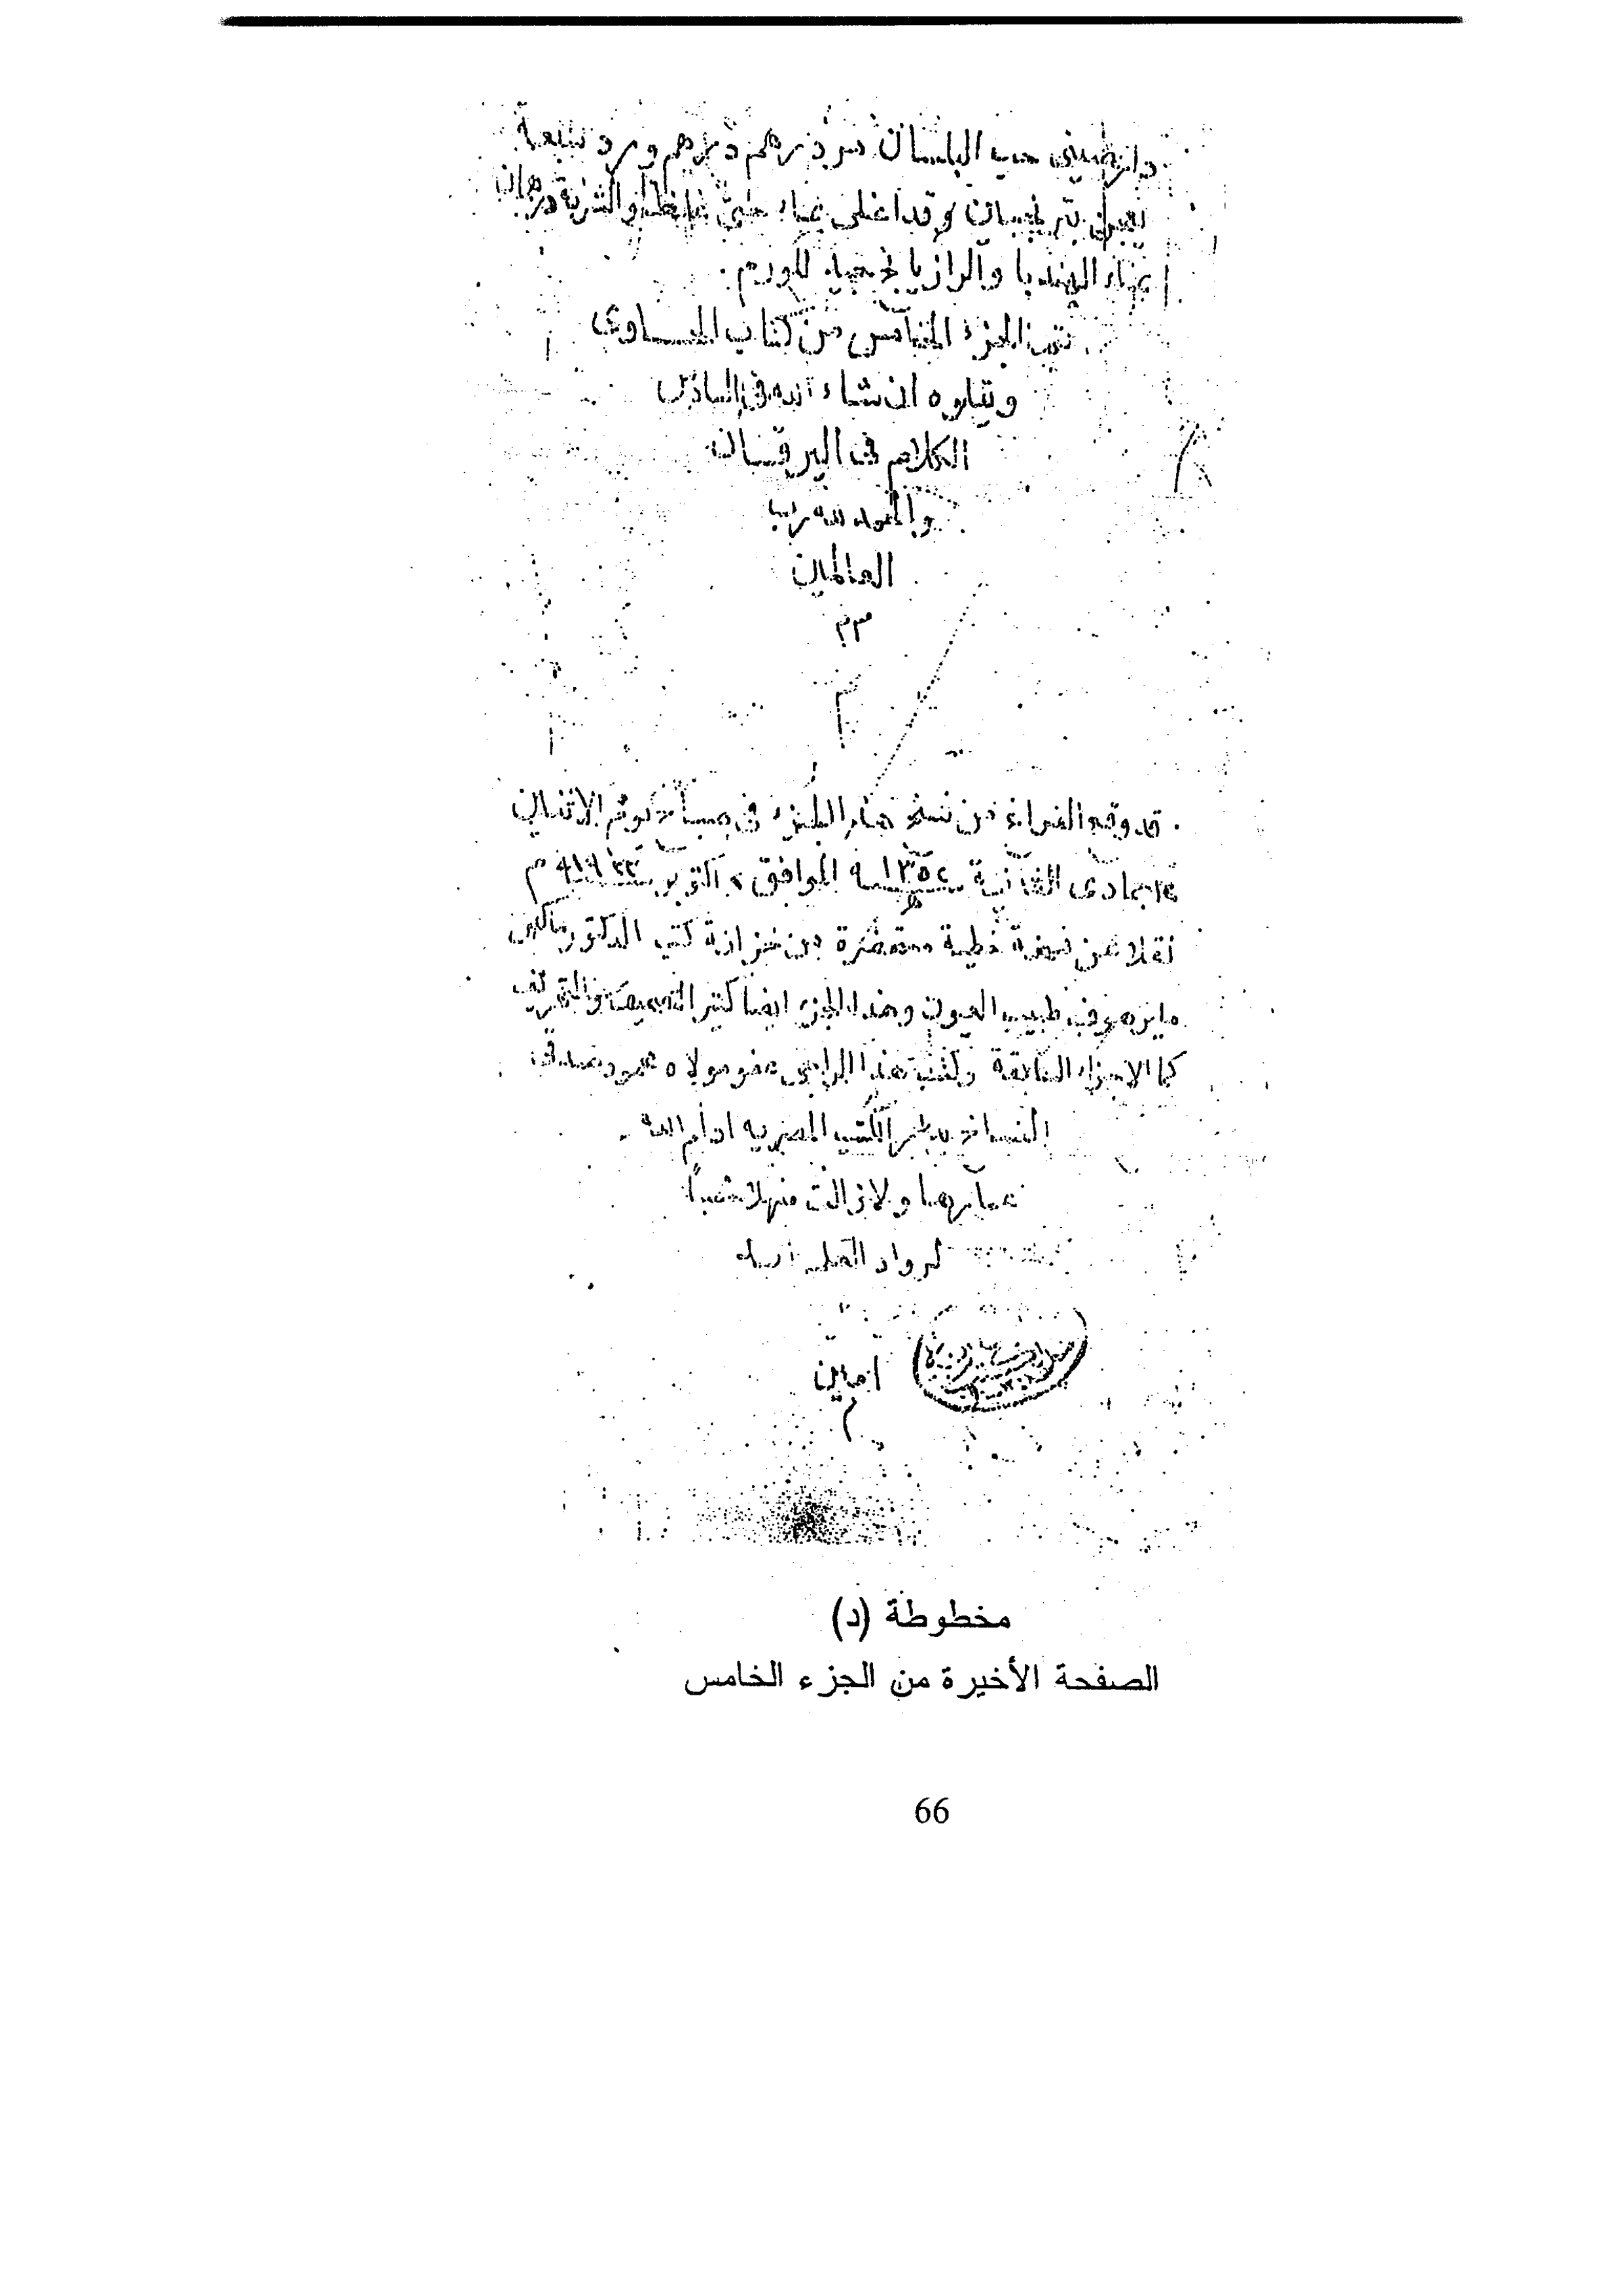 حب البلسان درهم درهم ورد سبعة
وقد اغلى بماء حتى غلظ والشربة درهمان
بماء الهندبا والرازيانج جيد للورم.
تم الجزء الخامس من كتاب الحاوى
ويتلوه ان شاء الله فى السادس
الكلام فى اليرقان
والحمد لله رب
العالمين
قد وقع الفراغ من نسخ هذا الجزء فى صباح يوم الاثنين
جمادى الثانية سنة ١٣٥٢ الموافق اكتوبر م
نقلا عن نسخة خطية مستحضرة من خزانة كتب الدكتور ماكس
مايرهوف طبيب العيون وهذا الجزء ايضا كثير التصحيف والتحريف
كما الاجزاء السابقة وكتب هذا الراجى عفو مولاه محمود صدقى
النساخ بدار الكتب المصرية ادام الله
عمارها ولا زالت منهلا عذبا
لرواد العلم
امين
مخطوطة (د)
الصفحة الأخيرة من الجزء الخامس
66